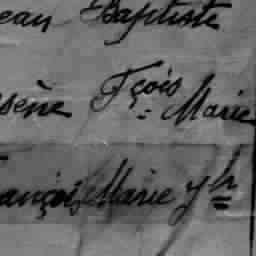 ean Baptiste
sène Fçois = Marie
ançois Marie yh =